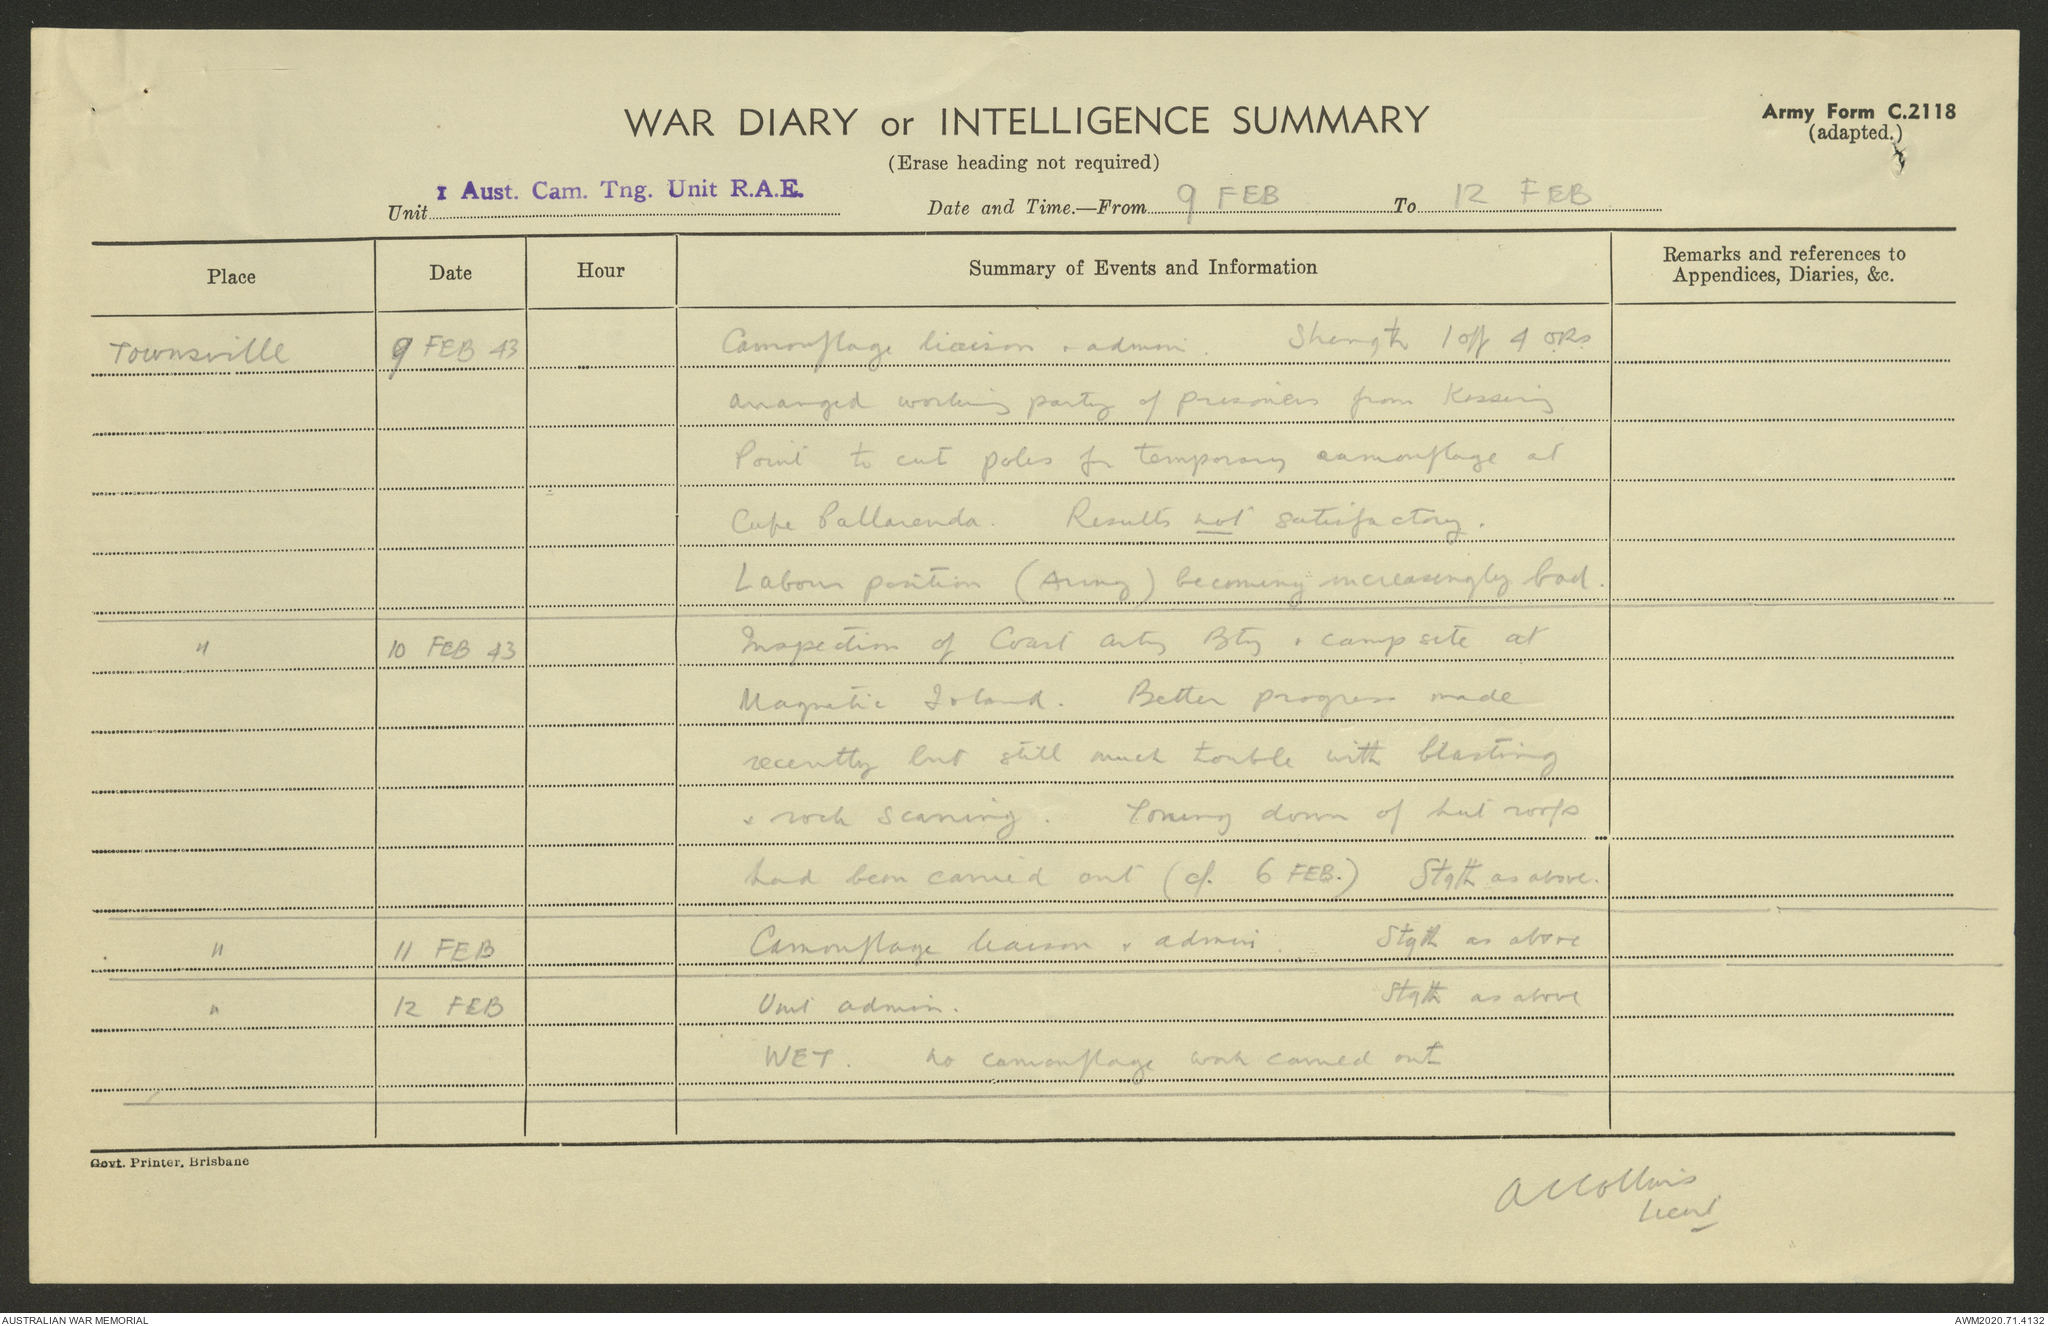 WAR DIARY or INTELLIGENCE SUMMARY
Army Form C.2118
(adapted.)
(Erase heading not required)
Unit 1 Aust. Cam. Tng. Unit R.A.E.
Date and Time.—From 9 FEB To 12 FEB
Place Date Hour Summary of Events and Information Remarks and references to
Appendices, Diaries, &c.
Townsville 9 FEB 43 Camouflage liaison & admin. Strength 1 off 4 ORs
Arranged working party of prisoners from Kissing
Point to cut poles for temporary camouflage at
Cape Pallarenda. Results not satisfactory.
Labour position (Army) becoming increasingly bad.
" 10 FEB 43 Inspection of Coast Arty Bty & camp site at
Magnetic Island. Better progress made
recently but still much trouble with blasting
& rock scarring. Toning down of hut roofs
had been carried out (cf. 6 FEB.) Stgth as above.
" 11 FEB Camouflage liaison & admin. Stgth as above
" 12 FEB Unit admin. Stgth as above
WET. No camouflage work carried out
Govt. Printer, Brisbane
Collins
Lieut
AUSTRALIAN WAR MEMORIAL
AWM2020.71.4132